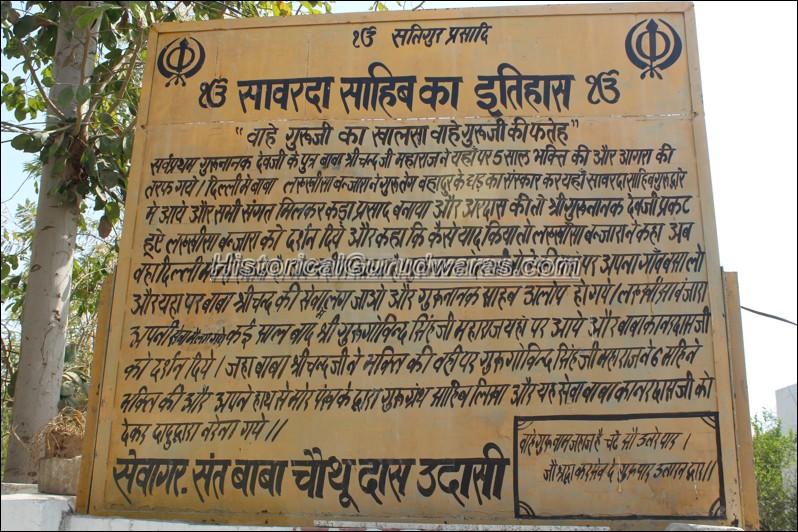 ੴ सतिगुर प्रसादि
ੴ सावरदा साहिब का इतिहास ੴ
"वाहे गुरूजी का खालसा वाहे गुरूजी की फतेह"
सर्वप्रथम गुरूनानक देवजी के पुत्र बाबा श्रीचन्द जी महाराज ने यहाँ पर 5 साल भक्ति की और आगरा की
तरफ गये। दिल्ली मे बाबा लखीसा बन्जारा ने गुरूतेग बहादुर के धड़ का संस्कार कर यहाँ सावरदा साहिब गुरूद्वारे
मे आये और सभी संगत मिलकर कड़ा प्रसाद बनाया और अरदास की तो श्री गुरूनानक देवजी प्रकट
हुऐ लखीसा बन्जारा को दर्शन दिये और कहा कि कैसे याद किया तो लखीसा बन्जारा ने कहा अब
वहा दिल्ली में पर अपना गाँव बसा लो
HistoricalGurudwaras.com
और यहा पर बाबा श्रीचन्द की सेवा लग जाओ और गुरूनानक साहब अलोप हो गये। लखीसा बंजारा
अपनी कई साल बाद श्री गुरू गोविन्द सिंह जी महाराज यहां पर आये और बाबा कानरदास जी
को दर्शन दिये। जहा बाबा श्रीचन्द जी ने भक्ति की वही पर गुरू गोविन्द सिंह जी महाराज ने 6 महिने
भक्ति की और अपने हाथ से मोर पंख के द्वारा गुरूग्रंथ साहिब लिखा और यह सेवा बाबा कानरदास जी को
देकर दादुद्वारा नरेना गये।।
सेवागर. संत बाबा चौथू दास उदासी
वाहे गुरू नाम जहाज है चढ़े सौ उतरे पार।
जौ श्रद्धा कर सेव दे गुरू पार उतारन हार।।